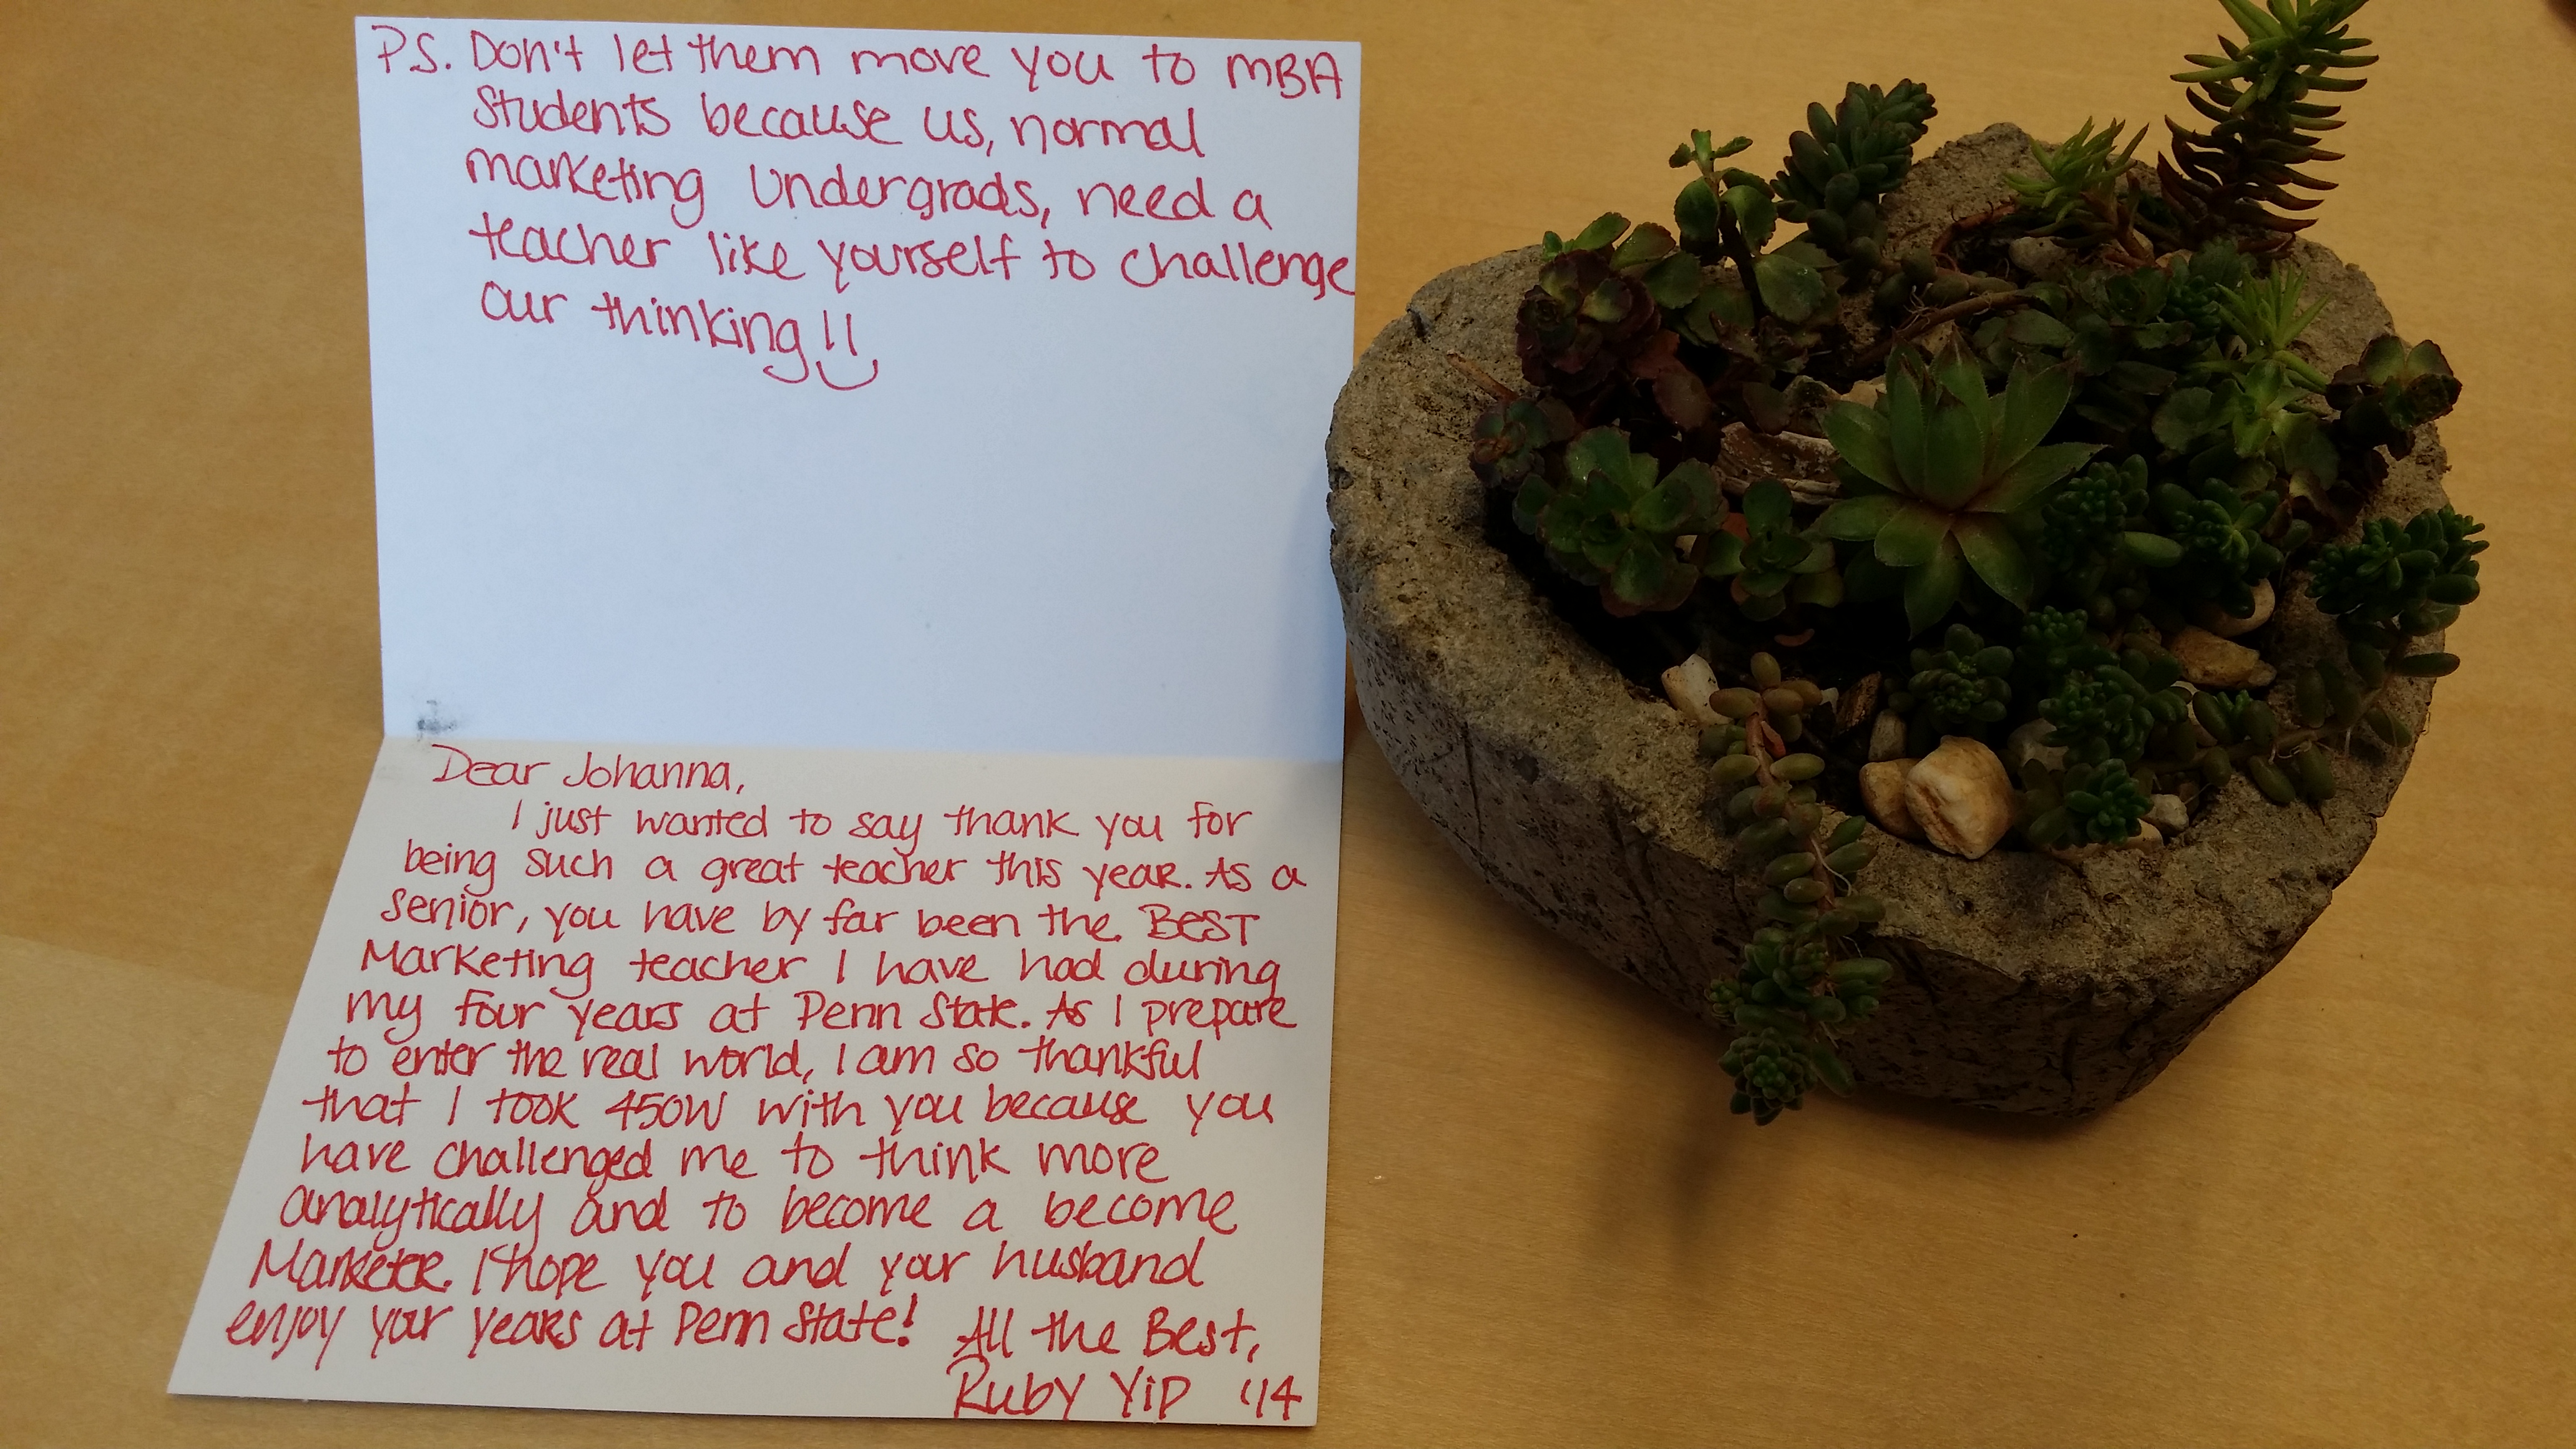 P.S. Don't let them move you to MBA
students because us, normal
marketing undergrads, need a
teacher like yourself to challenge
our thinking!!
Dear Johanna,
I just wanted to say thank you for
being such a great teacher this year. As a
senior, you have by far been the BEST
Marketing teacher I have had during
my four years at Penn State. As I prepare
to enter the real world, I am so thankful
that I took 450W with you because you
have challenged me to think more
analytically and to become a become
Marketer. I hope you and your husband
enjoy your years at Penn State! All the Best,
Ruby Yip '14